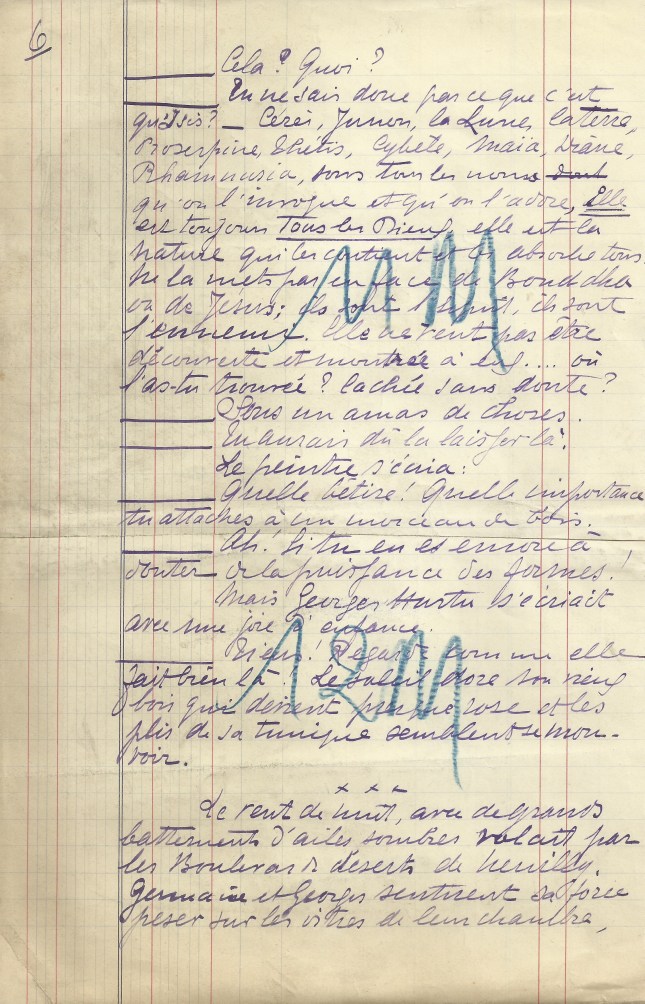 6
Cela ? Quoi ?
Tu ne sais donc pas ce que c'est
qu'Isis ? — Cérès, Junon, la Lune, la terre,
Proserpine, Thétis, Cybèle, Maïa, Diane,
Rhamnusia, sous tous les noms dont
qu'on l'invoque et qu'on l'adore, Elle
est toujours Tous les Dieux, elle est la
nature qui les contient et les absorbe tous.
Ne la mets pas en face de Bouddha
ou de Jésus ; ils sont l'esprit, ils sont
l'ennemi. Elle ne veut pas être
découverte et montrée à eux.... où
l'as-tu trouvée ? Cachée sans doute ?
Sous un amas de choses.
Tu aurais dû la laisser là.
Le peintre s'écria :
Quelle bêtise ! Quelle importance
tu attaches à un morceau de bois.
Ah ! Si tu en es encore à
douter de la puissance des formes !
Mais Georges s'écriait
avec une joie d'enfance.
Tiens ! Regarde comme elle
fait bien là ! Le soleil dore son vieux
bois qui devient presque rose et les
plis de sa tunique semblent se mou-
voir.
x x x
Le vent de nuit, avec de grands
battements d'ailes sombres volait par
les Boulevards déserts de Neuilly.
Germaine et Georges sentirent sa force
peser sur les vitres de leur chambre,